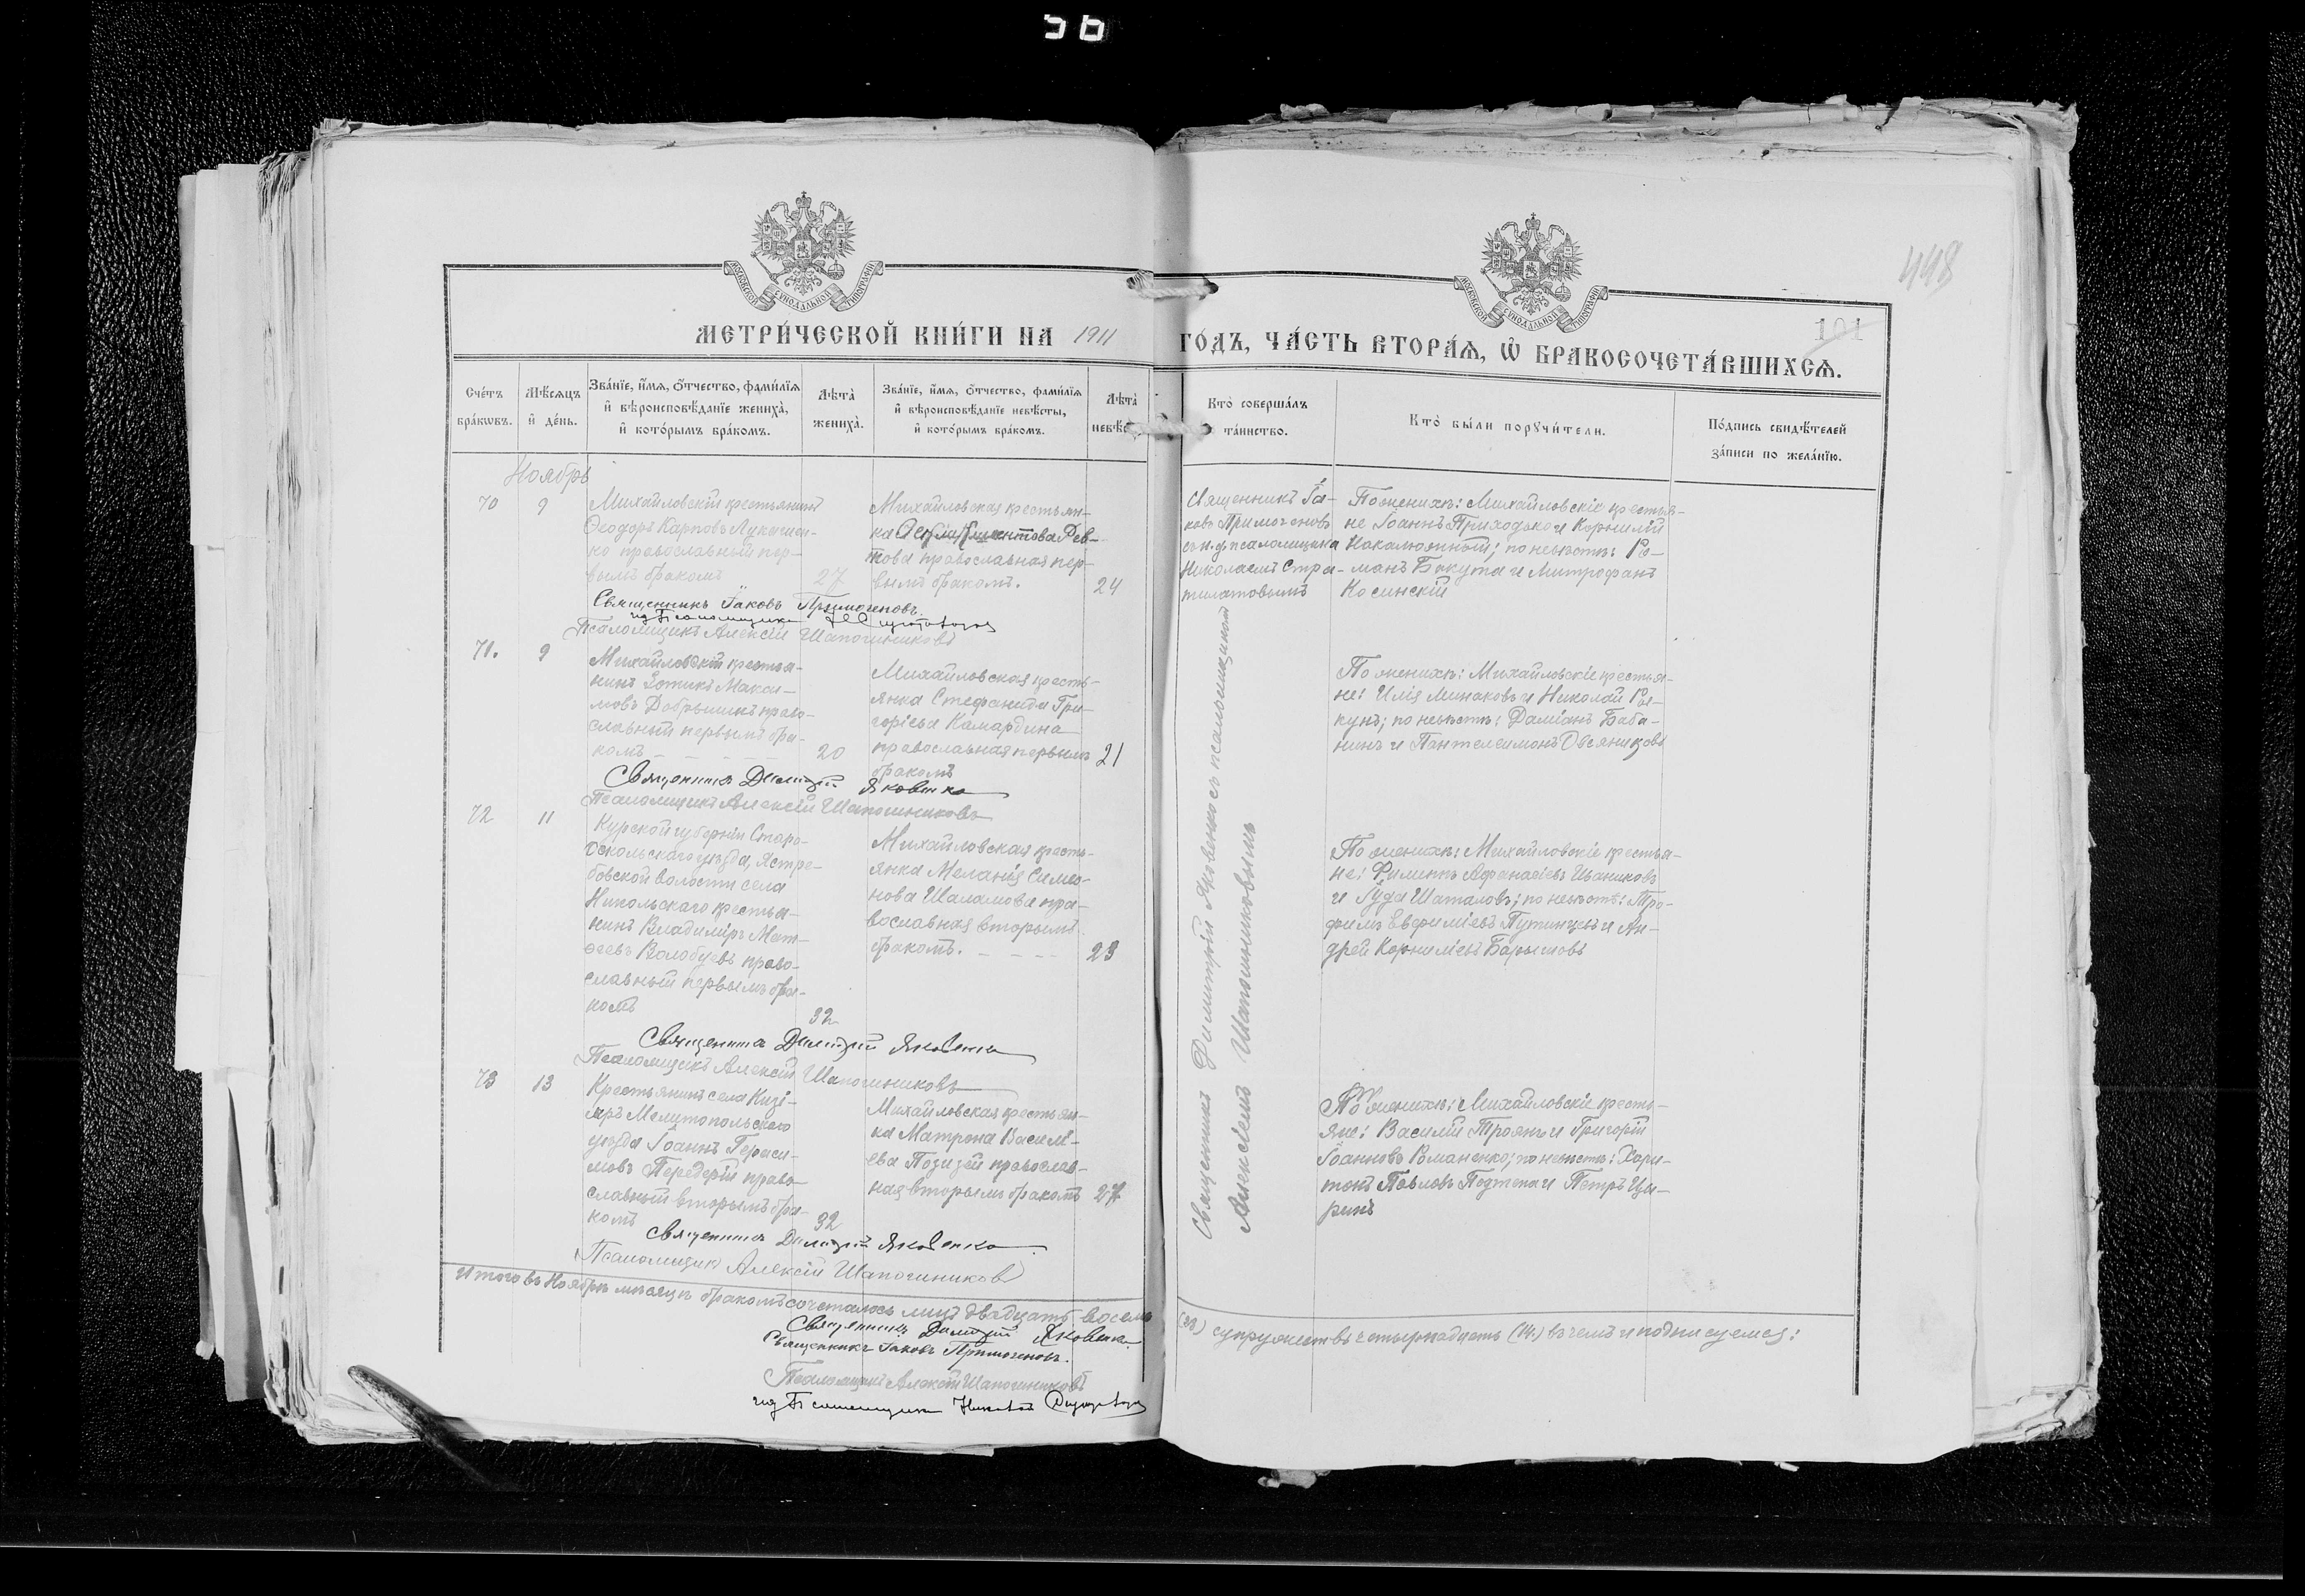 56
448
МОСКОВСКОЙ СѴНОДАЛЬНОЙ ТИПОГРАФІИ
МОСКОВСКОЙ СѴНОДАЛЬНОЙ ТИПОГРАФІИ
МЕТРИ́ЧЕСКОЙ КНИ́ГИ НА 1911 ГО́ДЪ, ЧА́СТЬ ВТОРА́Ѧ, Ѡ҆ БРАКОСОЧЕТА́ВШИХСѦ.
101
Сче́тъ
бра́кѡвъ.
Мѣ́сѧцъ
и҆ де́нь.
Зва́нїе, и҆́мѧ, ѻ҆́тчество, фами́лїѧ
и҆ вѣроисповѣ́данїе жениха̀,
и҆ кото́рымъ бра́комъ.
Лѣта̀
жениха̀.
Зва́нїе, и҆́мѧ, ѻ҆́тчество, фами́лїѧ
и҆ вѣроисповѣ́данїе невѣ́сты,
и҆ кото́рымъ бра́комъ.
Лѣта̀
невѣ́с
Кто̀ соверша́лъ
та́инство.
Кто̀ бы́ли порꙋчи́тели.
По́дпись свидѣ́телей
за́писи по жела́нїю.
Ноябрь
70
9
Михайловскій крестьянинъ
Ѳеодоръ Карповъ Лукашен-
ко православный пер-
вымъ бракомъ
27
Михайловская крестьян-
ка
православная пер-
вымъ бракомъ.
24
Священникъ Іа-
ковъ Примогеновъ
съ и. д. псаломщика
Николаемъ Стра-
тилатовымъ
По женихѣ: Михайловскіе крестья-
не Іоаннъ Приходько и Корнилій
Накалюжный; по невѣстѣ: Ро-
манъ Бокута и Митрофанъ
Косинскій
Священникъ Іаковъ Примогеновъ.
Псаломщикъ Алексій Шапошниковъ
71.
9
Михайловскій крестья-
нинъ Зотикъ Макси-
мовъ Добрынинъ право-
славный первымъ бра-
комъ
20
Михайловская кресть-
янка Стефанида Гри-
горіева Камардина
православная первымъ
бракомъ
21
По женихѣ: Михайловскіе крестья-
не: Илія Минаковъ и Николай Ро-
кунъ; по невѣстѣ: Даміанъ Баба-
нинъ и Пантелеимонъ Овсяниковъ
Священникъ Димитрій Яковенко
Псаломщикъ Алексій Шапошниковъ
72
11
Курской губерніи Старо-
Оскольскаго уѣзда, Ястре-
бовской волости села
Никольскаго крестья-
нинъ Владиміръ Мат-
ѳеевъ Волобуевъ право-
славный первымъ бра-
комъ
32
Михайловская кресть-
янка Меланія Симео-
нова Шаламова пра-
вославная вторымъ
бракомъ.
23
По женихѣ: Михайловскіе крестья-
не: Филиппъ Аѳанасіевъ Иваниковъ
и Іуда Шаталовъ; по невѣстѣ: Тро-
фимъ Евфиміевъ Путинцевъ и Ан-
дрей Корниліевъ Барымовъ
Священникъ Димитрій Яковенко
Псаломщикъ Алексій Шапошниковъ
73
13
Крестьянинъ села Кизі-
яръ Мелитопольскаго
уѣзда Іоаннъ Гераси-
мовъ Передерій право-
славный вторымъ бра-
комъ
32
Михайловская крестьян-
ка Матрона Василі-
ева Позизей православ-
ная вторымъ бракомъ
27
По женихѣ: Михайловскіе кресть-
яне: Василій Троянъ и Григорій
Іоанновъ Романенко; по невѣстѣ: Хари-
тонъ Павловъ Подтепа и Петръ Цы-
ринъ
Священникъ Димитрій Яковенко
Псаломщикъ Алексій Шапошниковъ
Священникъ Димитрій Яковенко съ псаломщикомъ
Алексіемъ Шапошниковымъ
Итого въ Ноябрѣ мѣсяцѣ бракомъ сочеталось лицъ двадцать восемь (28) супружествъ четырнадцать (14.) въ чемъ и подписуемся:
Священникъ Димитрій Яковенко
Священникъ Іаковъ Примогеновъ.
Псаломщикъ Алексій Шапошниковъ
Псаломщика Николай